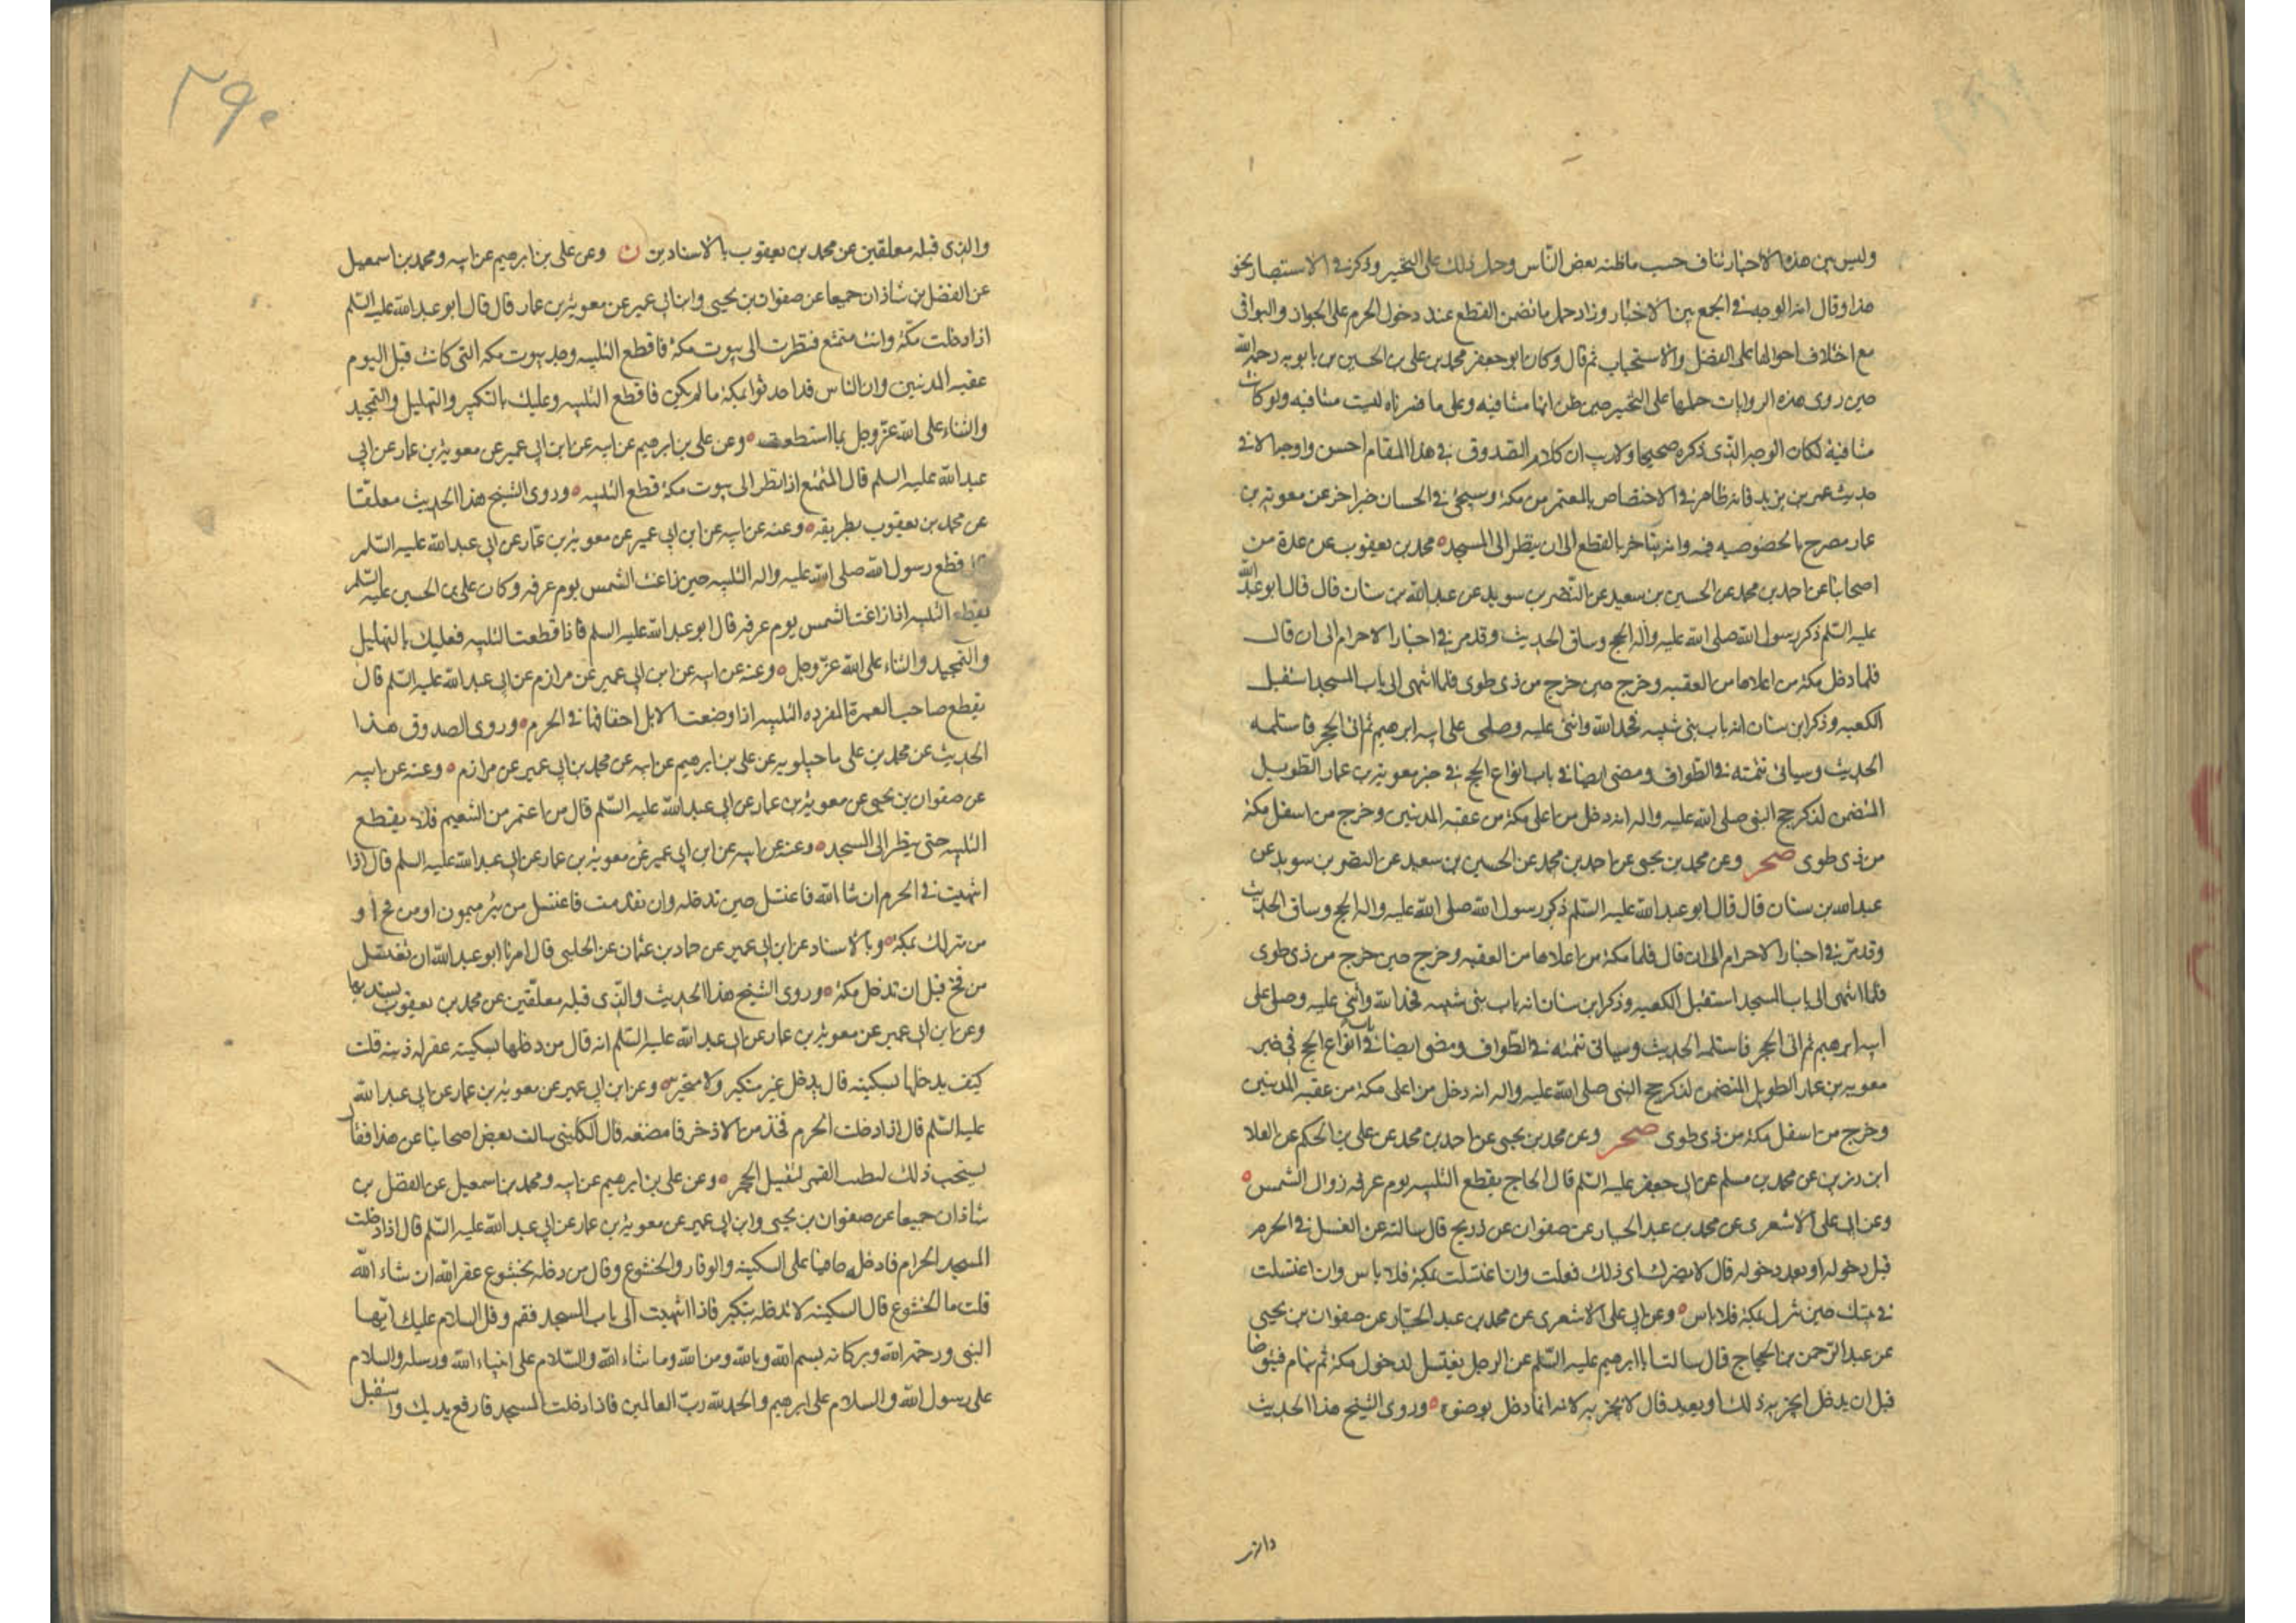 وليس بين هذه الاخبار تناف حسب ماظنه بعض الناس وحمل ذلك على التخيير وذكر في الاستبصار نحو
هذا وقال انه الوجه في الجمع بين الاخبار وزاد حمل ما تضمن القطع عند دخول الحرم على الجواز والبواقى
مع اختلاف احوالها على الفضل والاستحباب ثم قال وكان ابو جعفر محمد بن على بن الحسين بن بابويه رحمه الله
حين روى هذه الروايات حملها على التخيير حين ظن انها متنافيه وعلى ما فسرناه ليست متنافيه ولو كانت
متنافية لكان الوجه الذى ذكره صحيحا ولا ريب ان كلام الصدوق في هذا المقام احسن واوجه الا في
حديث عمر بن يزيد فانه ظاهر في الاختصاص بالمعتمر من مكة وسيجئ في الحسان خبر اخر عن معوية بن
عمار مصرح بالخصوصيه فيه وانه يتاخر بالقطع الى ان ينظر الى المسجد محمد بن يعقوب عن عدة من
اصحابنا عن احمد بن محمد عن الحسين بن سعيد عن النضر بن سويد عن عبد الله بن سنان قال قال ابو عبد الله
عليه السلم ذكر رسول الله صلى الله عليه وآله الحج وساق الحديث وقد مر في اخبار الاحرام الى ان قال
فلما دخل مكة من اعلاها من العقبه وخرج حين خرج من ذى طوى فلما انتهى الى باب المسجد استقبل
الكعبه وذكر ابن سنان انه باب بنى شيبه فحمد الله واثنى عليه وصلى على ابيه ابرهيم ثم اتى الحجر فاستلمه
الحديث وسياتى تتمته في الطواف ومضى ايضا في باب انواع الحج في خبر معوية بن عمار الطويل
المتضمن لذكر حج النبى صلى الله عليه واله انه دخل من اعلى مكة من عقبة المدنيين وخرج من اسفل مكة
من ذى طوى صحر وعن محمد بن يحيى عن احمد بن محمد عن الحسين بن سعيد عن النضر بن سويد عن
عبد الله بن سنان قال قال ابو عبد الله عليه السلم ذكر رسول الله صلى الله عليه واله الحج وساق الحديث
وقد مر في اخبار الاحرام الى ان قال فلما مكة من اعلاها من العقبه وخرج حين خرج من ذى طوى
فلما انتهى الى باب المسجد استقبل الكعبه وذكر ابن سنان انه باب بنى شيبه فحمد الله وأثنى عليه وصلى على
ابيه ابرهيم ثم اتى الحجر فاستلمه الحديث وسياتى تتمته في الطواف ومضى ايضا في باب انواع الحج في خبر
معوية بن عمار الطويل المتضمن لذكر حج النبى صلى الله عليه واله انه دخل من اعلى مكة من عقبة المدنيين
وخرج من اسفل مكة من ذى طوى صحر وعن محمد بن يحيى عن احمد بن محمد عن على بن الحكم عن العلا
ابن رزين عن محمد بن مسلم عن ابى جعفر عليه السلم قال الحاج يقطع التلبيه يوم عرفه زوال الشمس
وعن ابى على الاشعرى عن محمد بن عبد الجبار عن صفوان عن ذريح قال سالته عن الغسل في الحرم
قبل دخوله او بعد دخوله قال لا يضرك اى ذلك فعلت وان اغتسلت بمكة فلا باس وان اغتسلت
في بيتك حين تنزل بمكة فلا باس وعن ابى على الاشعرى عن محمد بن عبد الجبار عن صفوان بن يحيى
عن عبد الرحمن بن الحجاج قال سالت ابا ابرهيم عليه السلم عن الرجل يغتسل لدخول مكة ثم ينام فيتوضا
قبل ان يدخل ايجزيه ذلك او يعيد قال لا يجزيه لانه انما دخل بوضوء وروى الشيخ هذا الحديث
٢٩٠
والذى قبله معلقين عن محمد بن يعقوب بالاسنادين ن وعن على بن ابرهيم عن ابيه ومحمد بن اسمعيل
عن الفضل بن شاذان جميعا عن صفوان بن يحيى وابن ابى عمير عن معوية بن عمار قال قال ابو عبد الله عليه السلم
اذا دخلت مكة وانت متمتع فنظرت الى بيوت مكة فاقطع التلبيه وحد بيوت مكه التى كانت قبل اليوم
عقبه المدنيين وان الناس قد احدثوا بمكة ما لم يكن فاقطع التلبيه وعليك بالتكبير والتهليل والتمجيد
والثناء على الله عز وجل بما استطعت وعن على بن ابرهيم عن ابيه عن ابن ابى عمير عن معوية بن عمار عن ابى
عبد الله عليه السلم قال المتمتع اذا نظر الى بيوت مكة قطع التلبيه وروى الشيخ هذا الحديث معلقا
عن محمد بن يعقوب بطريقه وعنه عن ابيه عن ابن ابى عمير عن معوية بن عمار عن ابى عبد الله عليه السلم
قطع رسول الله صلى الله عليه واله التلبيه حين زاغت الشمس يوم عرفه وكان على بن الحسين عليه السلم
يقطع التلبيه اذا زاغت الشمس يوم عرفه قال ابو عبد الله عليه السلم فاذا قطعت التلبيه فعليك بالتهليل
والتمجيد والثناء على الله عز وجل وعنه عن ابيه عن ابن ابى عمير عن مرازم عن ابى عبد الله عليه السلم قال
يقطع صاحب العمرة المفرده التلبيه اذا وضعت الابل اخفافها في الحرم وروى الصدوق هذا
الحديث عن محمد بن على ماجيلويه عن على بن ابرهيم عن ابيه عن محمد بن ابى عمير عن مرازم وعنه عن ابيه
عن صفوان بن يحيى عن معوية بن عمار عن ابى عبد الله عليه السلم قال من اعتمر من التنعيم فلا يقطع
التلبيه حتى ينظر الى المسجد وعنه عن ابيه عن ابن ابى عمير عن معوية بن عمار عن ابى عبد الله عليه السلم قال اذا
انتهيت في الحرم ان شا الله فاغتسل حين تدخله وان تقدمت فاغتسل من بئر ميمون او من فخ أو
من منزلك بمكة وبالاسناد عن ابن ابى عمير عن حماد بن عثمان عن الحلبى قال امرنا ابو عبد الله ان نغتسل
من فخ قبل ان ندخل مكة وروى الشيخ هذا الحديث والذى قبله معلقين عن محمد بن يعقوب بسنديهما
وعن ابن ابى عمير عن معوية بن عمار عن ابى عبد الله عليه السلم انه قال من دخلها بسكينه غفر له ذنبه قلت
كيف يدخلها بسكينه قال يدخل غير متكبر ولا متجبر وعن ابن ابى عمير عن معوية بن عمار عن ابى عبد الله
عليه السلم قال اذا دخلت الحرم فخذ من الاذخر فامضغه قال الكلينى سالت بعض اصحابنا عن هذا فقال
يستحب ذلك ليطيب الفم لتقبيل الحجر وعن على بن ابرهيم عن ابيه ومحمد بن اسمعيل عن الفضل بن
شاذان جميعا عن صفوان بن يحيى وابن ابى عمير عن معوية بن عمار عن ابى عبد الله عليه السلم قال اذا دخلت
المسجد الحرام فادخله حافيا على السكينه والوقار والخشوع وقال من دخله بخشوع غفر الله ان شاء الله
قلت ما الخشوع قال السكينه لا تدخله بتكبر فاذا انتهيت الى باب المسجد فقم وقل السلام عليك ايها
النبى ورحمة الله وبركاته بسم الله وبالله ومن الله وما شاء الله والسلام على انبياء الله ورسله والسلام
على رسول الله والسلام على ابرهيم والحمد لله رب العالمين فاذا دخلت المسجد فارفع يديك واستقبل